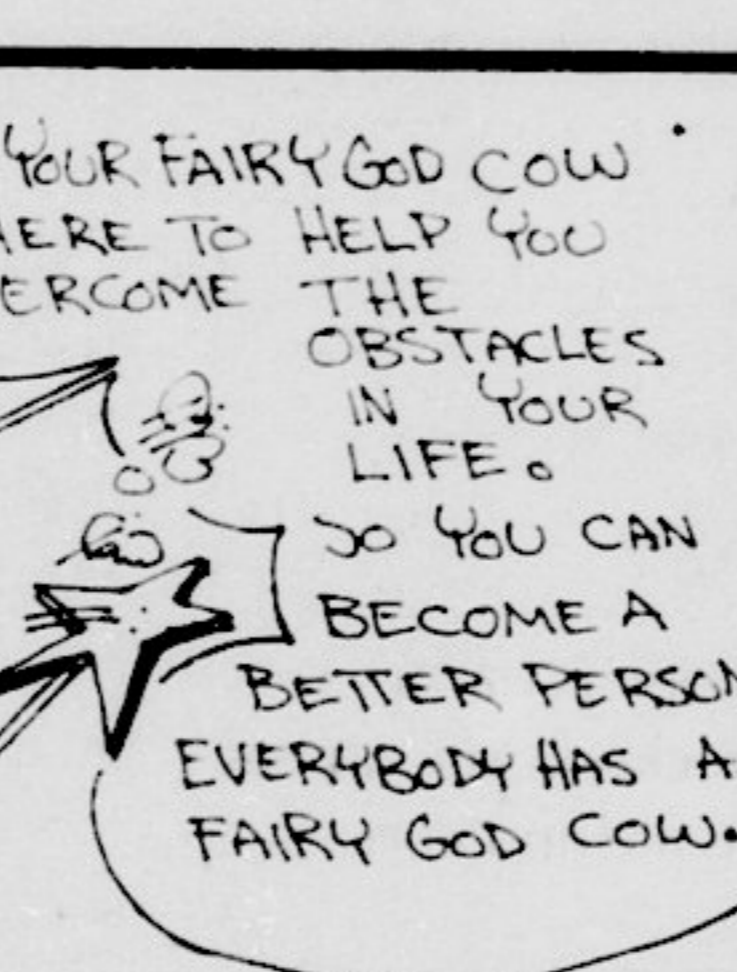 YOUR FAIRY GOD COW
HERE TO HELP YOU
ERCOME THE
OBSTACLES
IN YOUR
LIFE.
SO YOU CAN
BECOME A
BETTER PERSON
EVERYBODY HAS A
FAIRY GOD COW.